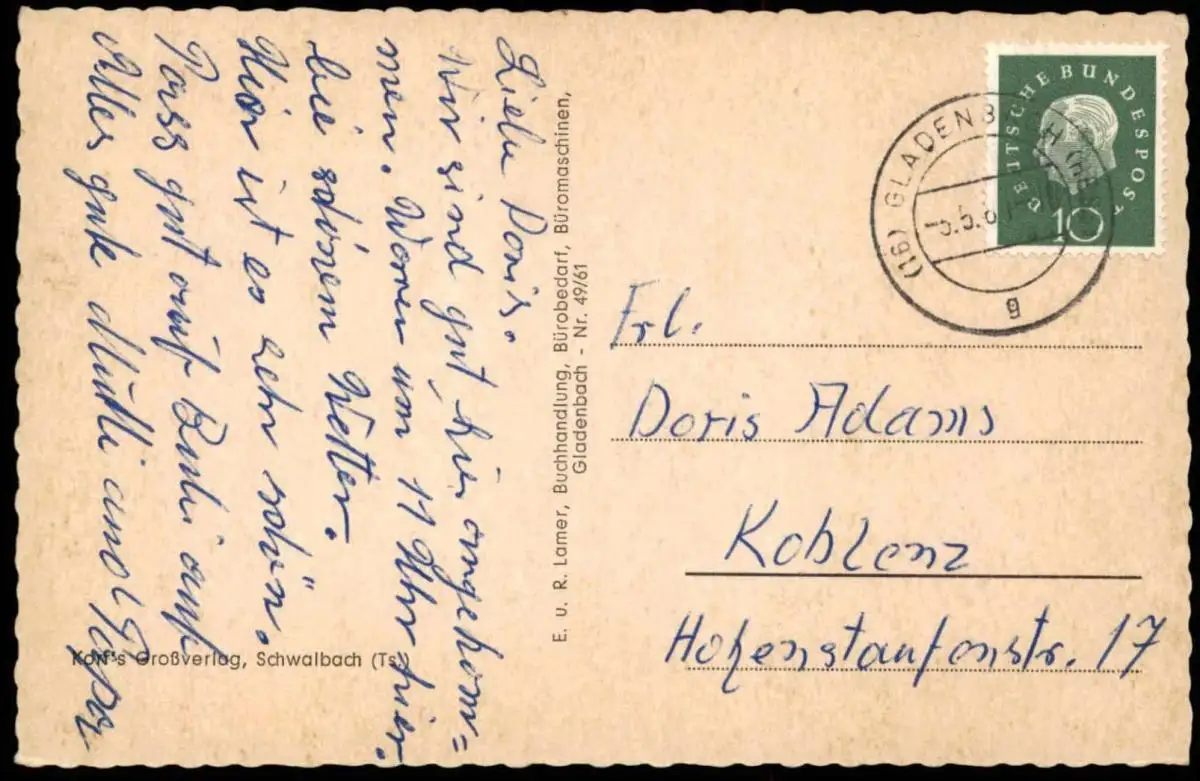 Liebe Doris.
Wir sind gut, hier angekom=
men. Waren um 11 Uhr hier.
bei schönem Wetter.
Hier ist es sehr schön.
Pass gut auf Bubi auf
Alles gute Mutti und Papa
E. u. R. Lamer, Buchhandlung, Bürobedarf, Büromaschinen,
Gladenbach - Nr. 49/61
Korf's Großverlag, Schwalbach (Ts.)
DEUTSCHE BUNDESPOST
10
(16) GLADENBACH
-5.5.61
g
Frl.
Doris Adams
Koblenz
Hohenstaufenstr. 17